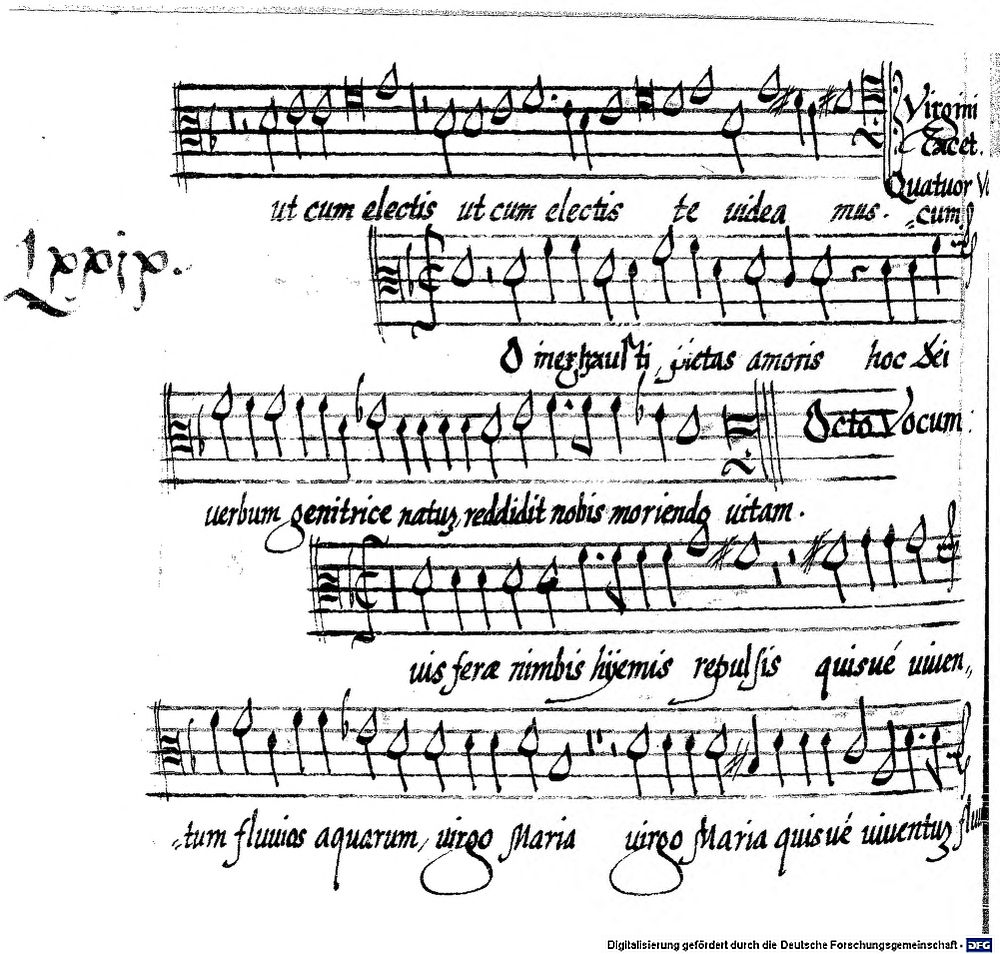 Viromi
tacet.
Quatuor Vo
ut cum electis ut cum electis te videa mus. cum
Lxxix.
O inexhausti pietas amoris hoc Dei
Octo Vocum:
verbum genitrice natuz, reddidit nobis moriendo vitam.
vis feræ nimbis hyemis repulsis quisué viven,,
,,tum fluvios aquarum, virgo Maria virgo Maria quisué viventuz fluvi
Digitalisierung gefördert durch die Deutsche Forschungsgemeinschaft - DFG